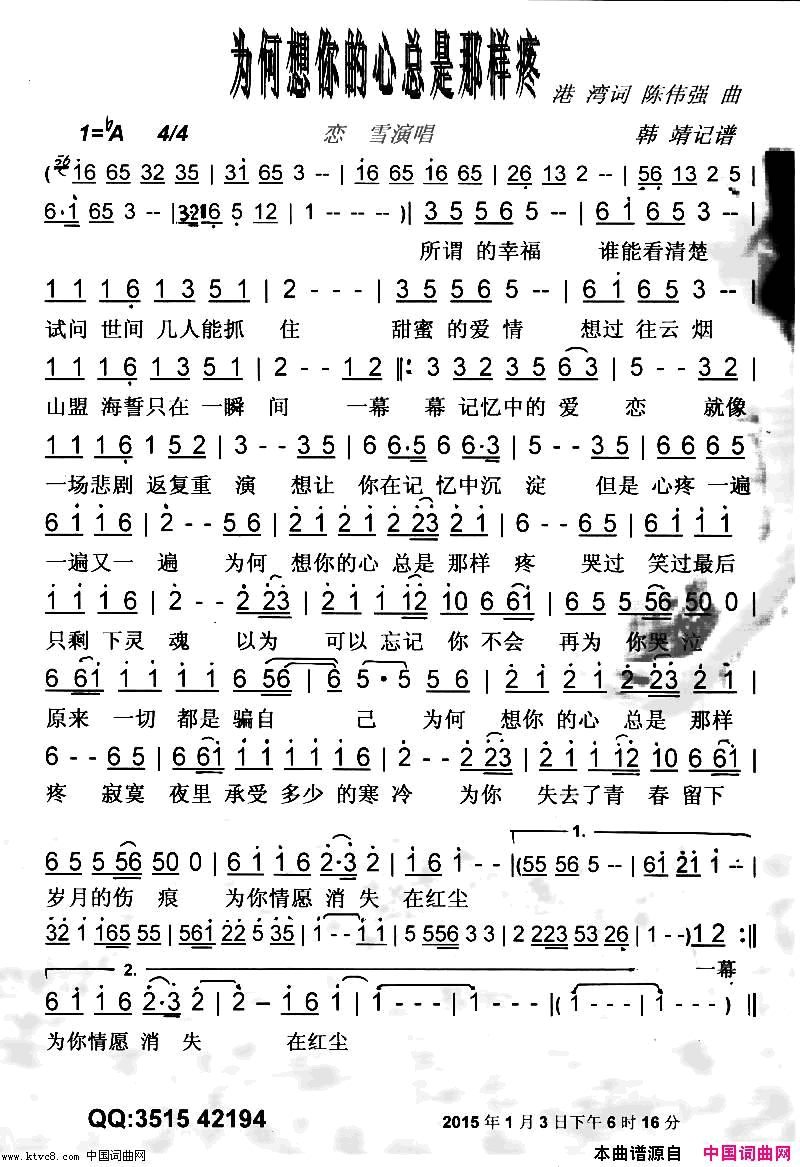 为何想你的心总是那样疼
港 湾词 陈伟强 曲
1=♭A 4/4 恋 雪演唱 韩 靖记谱
16 65 32 35 | 31 65 3 -- | 16 65 16 65 | 26 13 2 -- | 56 13 2 5 |
6·1 65 3 -- | 3216 5 12 | 1 -- -- )| 3 5 5 6 5 -- | 6 1 6 5 3 -- |
所谓 的幸福 谁能看清楚
1 1 1 6 1 3 5 1 | 2 - - - | 3 5 5 6 5 -- | 6 1 6 5 3 -- |
试问 世间 几人能抓 住 甜蜜 的爱 情 想过 往云 烟
1 1 1 6 1 3 5 1 | 2 -- 1 2 ‖: 3 3 2 3 5 6 3 | 5 -- 3 2 |
山盟 海誓只在 一瞬 间 一幕 幕 记忆中的 爱 恋 就像
1 1 1 6 1 5 2 | 3 -- 3 5 | 6 6·5 6 6·3 | 5 -- 3 5 | 6 6 6 6 5 |
一场悲剧 返复重 演 想让 你在记 忆中沉 淀 但是 心疼 一遍
6 1 1 6 | 2 -- 5 6 | 2 1 2 1 2 1 2 23 | 6 -- 5 6 | 1 1 1 1 1
一遍又一 遍 为何 想你的心 总是 那样 疼 哭过 笑过最后
1 1 1 6 | 2 -- 2 23 | 1 1 1 12 10 6 61 | 6 5 5 5 56 50 0 |
只剩 下灵 魂 以为 可以 忘记 你 不会 再为 你哭 泣
6 61 1 1 1 6 56 | 6 5 · 5 56 | 2 1 2 1 2 1 2 23 |
原来 一切 都是 骗自 己 为何 想你 的心 总是 那样
6 -- 6 5 | 6 61 1 1 1 1 1 6 | 2 -- 2 23 | 2 1 1 12 10 6 61 |
疼 寂寞 夜里 承受 多少 的寒 冷 为你 失去了青 春 留下
1.
6 5 5 56 50 0 | 6 1 1 6 2·3 2 | 1 6 1 -- |( 55 56 5 -- | 61 21 1 -- |
岁月的伤 痕 为你情愿 消 失 在红尘
32 1 165 55 | 561 22 5 35 | 1 - 1 -- | 5 556 3 3 | 2 223 53 26 | 1 -- ) 12 :‖
一幕
2.
6 1 1 6 2·3 2 | 2 – 1 6 1 | 1 --- | 1 --- ‖( 1 --- | 1 --- )‖
为你情愿 消 失 在红尘
QQ:3515 42194
2015年1月3日下午6时16分
www.ktvc8.com 中国词曲网
本曲谱源自 中国词曲网